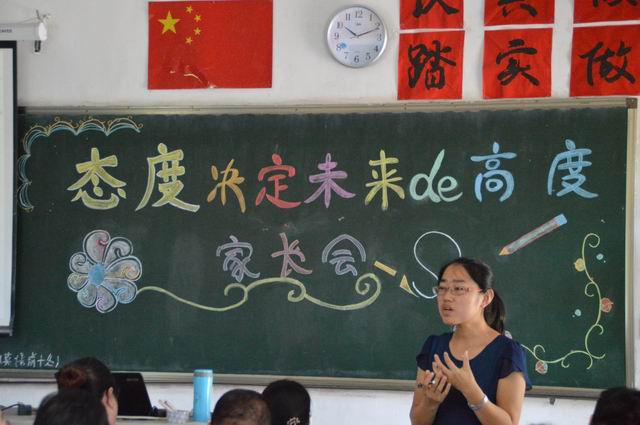 踏 实 做
态度决定未来de高度
家长会